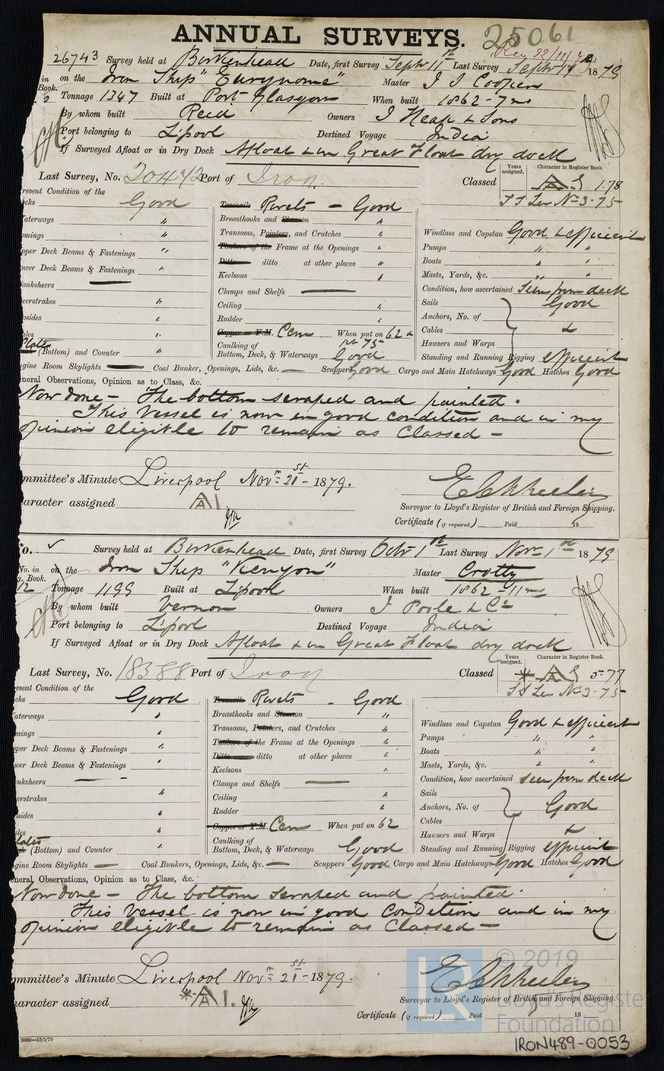 ANNUAL SURVEYS. 25061
26743 Survey held at Birkenhead Date, first Survey Septr 11th Last Survey Septr 1879
in on the Iron Ship "Eurynome" Master J J Cooper
Book. Tonnage 1347 Built at Port Glasgow When built 1862-7 ms
By whom built Reid Owners J Heap & Sons
Port belonging to Lipool Destined Voyage India
If Surveyed Afloat or in Dry Dock Afloat & in Great Float dry dock
Last Survey, No. Port of Iron Classed Years assigned. Character in Register Book. A 1.78
SS Liv No 3-75
resent Condition of the
cks Good Treenails Rivets - Good
Waterways " Breasthooks and Stemson "
omings " Transoms, Pointers, and Crutches " Windlass and Capstan Good & efficient
pper Deck Beams & Fastenings " Timbers of the Frame at the Openings " Pumps " "
ower Deck Beams & Fastenings " Ditto ditto at other places " Boats " "
anksheers — Keelsons " Masts, Yards, &c. " "
eerstrakes " Clamps and Shelfs — Condition, how ascertained seen from deck
psides " Ceiling " Sails Good
Rudder " Anchors, No. of
Plates Copper or Y.M. Cem When put on 62 & Cables &
pt 75
(Bottom) and Counter " Caulking of Bottom, Deck, & Waterways Good Hawsers and Warps
Standing and Running Rigging efficient
gine Room Skylights — Coal Bunkers, Openings, Lids, &c. — Scuppers Good Cargo and Main Hatchways Good Hatches Good
neral Observations, Opinion as to Class, &c.
Now done - The bottom scraped and painted.
This Vessel is now in good condition and in my
opinion eligible to remain as Classed -
mmittee's Minute Liverpool Novr 21st - 1879.
aracter assigned A1.
Surveyor to Lloyd's Register of British and Foreign Shipping.
Certificate (if required) Paid 18
No. Survey held at Birkenhead Date, first Survey Octr 1st Last Survey Novr 1st 1879
No. in on the Iron Ship "Kenyon" Master Crotty
g. Book. Tonnage 1199 Built at Lipool When built 1862 - 11 ms
By whom built Vernon Owners J Poole & Co
Port belonging to Lipool Destined Voyage India
If Surveyed Afloat or in Dry Dock Afloat & in Great Float dry dock
Last Survey, No. 18388 Port of Iron Classed Years assigned. Character in Register Book. * A 5-77
SS Liv No 3-75
resent Condition of the
cks Good Treenails Rivets - Good
aterways " Breasthooks and Stemson "
mings " Transoms, Pointers, and Crutches " Windlass and Capstan Good & efficient
pper Deck Beams & Fastenings " Timbers of the Frame at the Openings " Pumps " "
wer Deck Beams & Fastenings " Ditto ditto at other places " Boats " "
Keelsons " Masts, Yards, &c. " "
nksheers — Clamps and Shelfs — Condition, how ascertained seen from deck
erstrakes " Ceiling " Sails
sides " Rudder " Anchors, No. of Good
les " Copper or Y.M. Cem When put on 62 Cables
Plates (Bottom) and Counter " Caulking of Bottom, Deck, & Waterways Good Hawsers and Warps &
Standing and Running Rigging efficient
gine Room Skylights — Coal Bunkers, Openings, Lids, &c. — Scuppers Good Cargo and Main Hatchways Good Hatches Good
neral Observations, Opinion as to Class, &c.
Now done - The bottom scraped and painted.
This Vessel is now in good Condition and in my
opinion eligible to remain as Classed -
mmittee's Minute Liverpool Novr 21st - 1879.
aracter assigned * A 1.
Surveyor to Lloyd's Register of British and Foreign Shipping.
Certificate (if required) Paid 18
LR © 2019
Lloyd's Register
Foundation
IRON489-0053